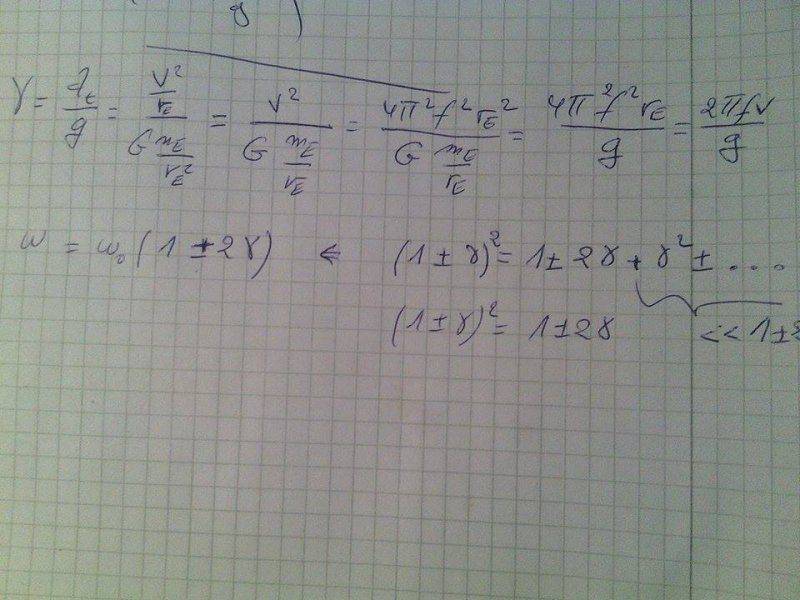 g )
γ = a_t/g = (v²/r_E)/(G m_E/r_E²) = v²/(G m_E/r_E) = 4π²f²r_E²/(G m_E/r_E) = 4π²f²r_E/g = 2πfv/g
ω = ω₀(1 ± 2γ) ⇐ (1 ± γ)² = 1 ± 2γ + γ² ± ....
(1 ± γ)² = 1 ± 2γ << 1 ± 2